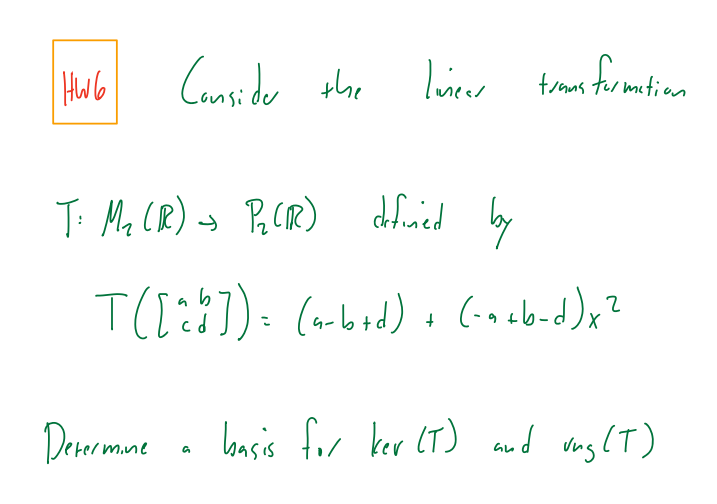 HW6 Consider the linear transformation
T: M₂(ℝ) → P₂(ℝ) defined by
T([a b
c d]) = (a-b+d) + (-a+b-d)x²
Determine a basis for ker(T) and rng(T)